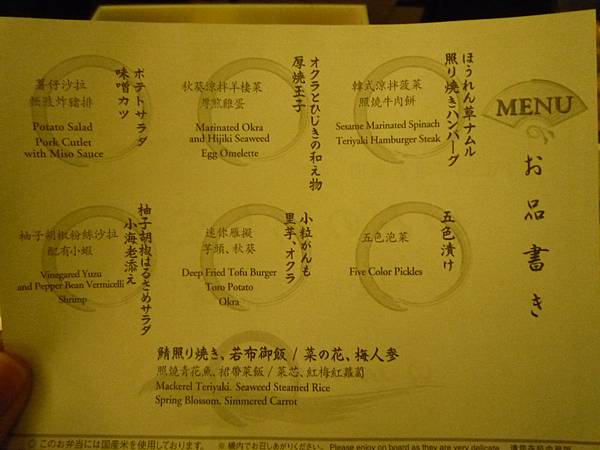 MENU
お品書き
ほうれん草ナムル
照り焼きハンバーグ
韓式涼拌菠菜
照燒牛肉餅
Sesame Marinated Spinach
Teriyaki Hamburger Steak
オクラとひじきの和え物
厚焼玉子
秋葵涼拌羊棲菜
厚煎雞蛋
Marinated Okra
and Hijiki Seaweed
Egg Omelette
ポテトサラダ
味噌カツ
薯仔沙拉
味噌炸豬排
Potato Salad
Pork Cutlet
with Miso Sauce
五色漬け
五色泡菜
Five Color Pickles
小粒がんも
里芋、オクラ
迷你雁擬
芋頭、秋葵
Deep Fried Tofu Burger
Toro Potato
Okra
柚子胡椒はるさめサラダ
小海老添え
柚子胡椒粉絲沙拉
配有小蝦
Vinegared Yuzu
and Pepper Bean Vermicelli
Shrimp
鯖照り焼き、若布御飯 / 菜の花、梅人参
照燒青花魚、裙帶菜飯 / 菜芯、紅梅紅蘿蔔
Mackerel Teriyaki. Seaweed Steamed Rice
Spring Blossom. Simmered Carrot
◎ このお弁当には国産米を使用しております。 ※ 機内でお召しあがりください。 Please enjoy on board as they are very delicate.